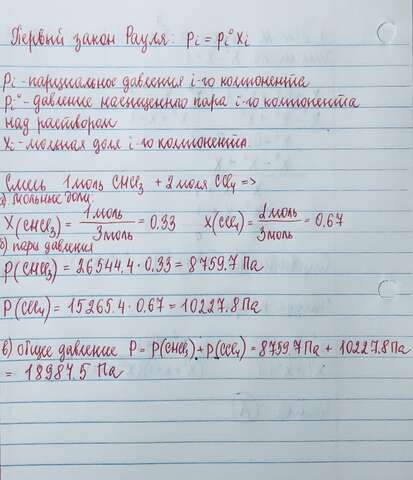 Первый закон Рауля: pi = pi° xi
pi - парциальное давления i-го компонента
pi° - давление насыщенно пара i-го компонента
над раствором
xi - мольная доля i-го компонента.
Смесь 1 моль CHCl3 + 2 моля CCl4 =>
а) мольные доли:
X(CHCl3) = 1 моль / 3 моль = 0.33 X(CCl4) = 2 моль / 3 моль = 0.67
б) пары давления
p(CHCl3) = 26544.4 · 0.33 = 8759.7 Па
p(CCl4) = 15265.4 · 0.67 = 10227.8 Па
в) общее давление P = p(CHCl3) + p(CCl4) = 8759.7 Па + 10227.8 Па
= 18987.5 Па